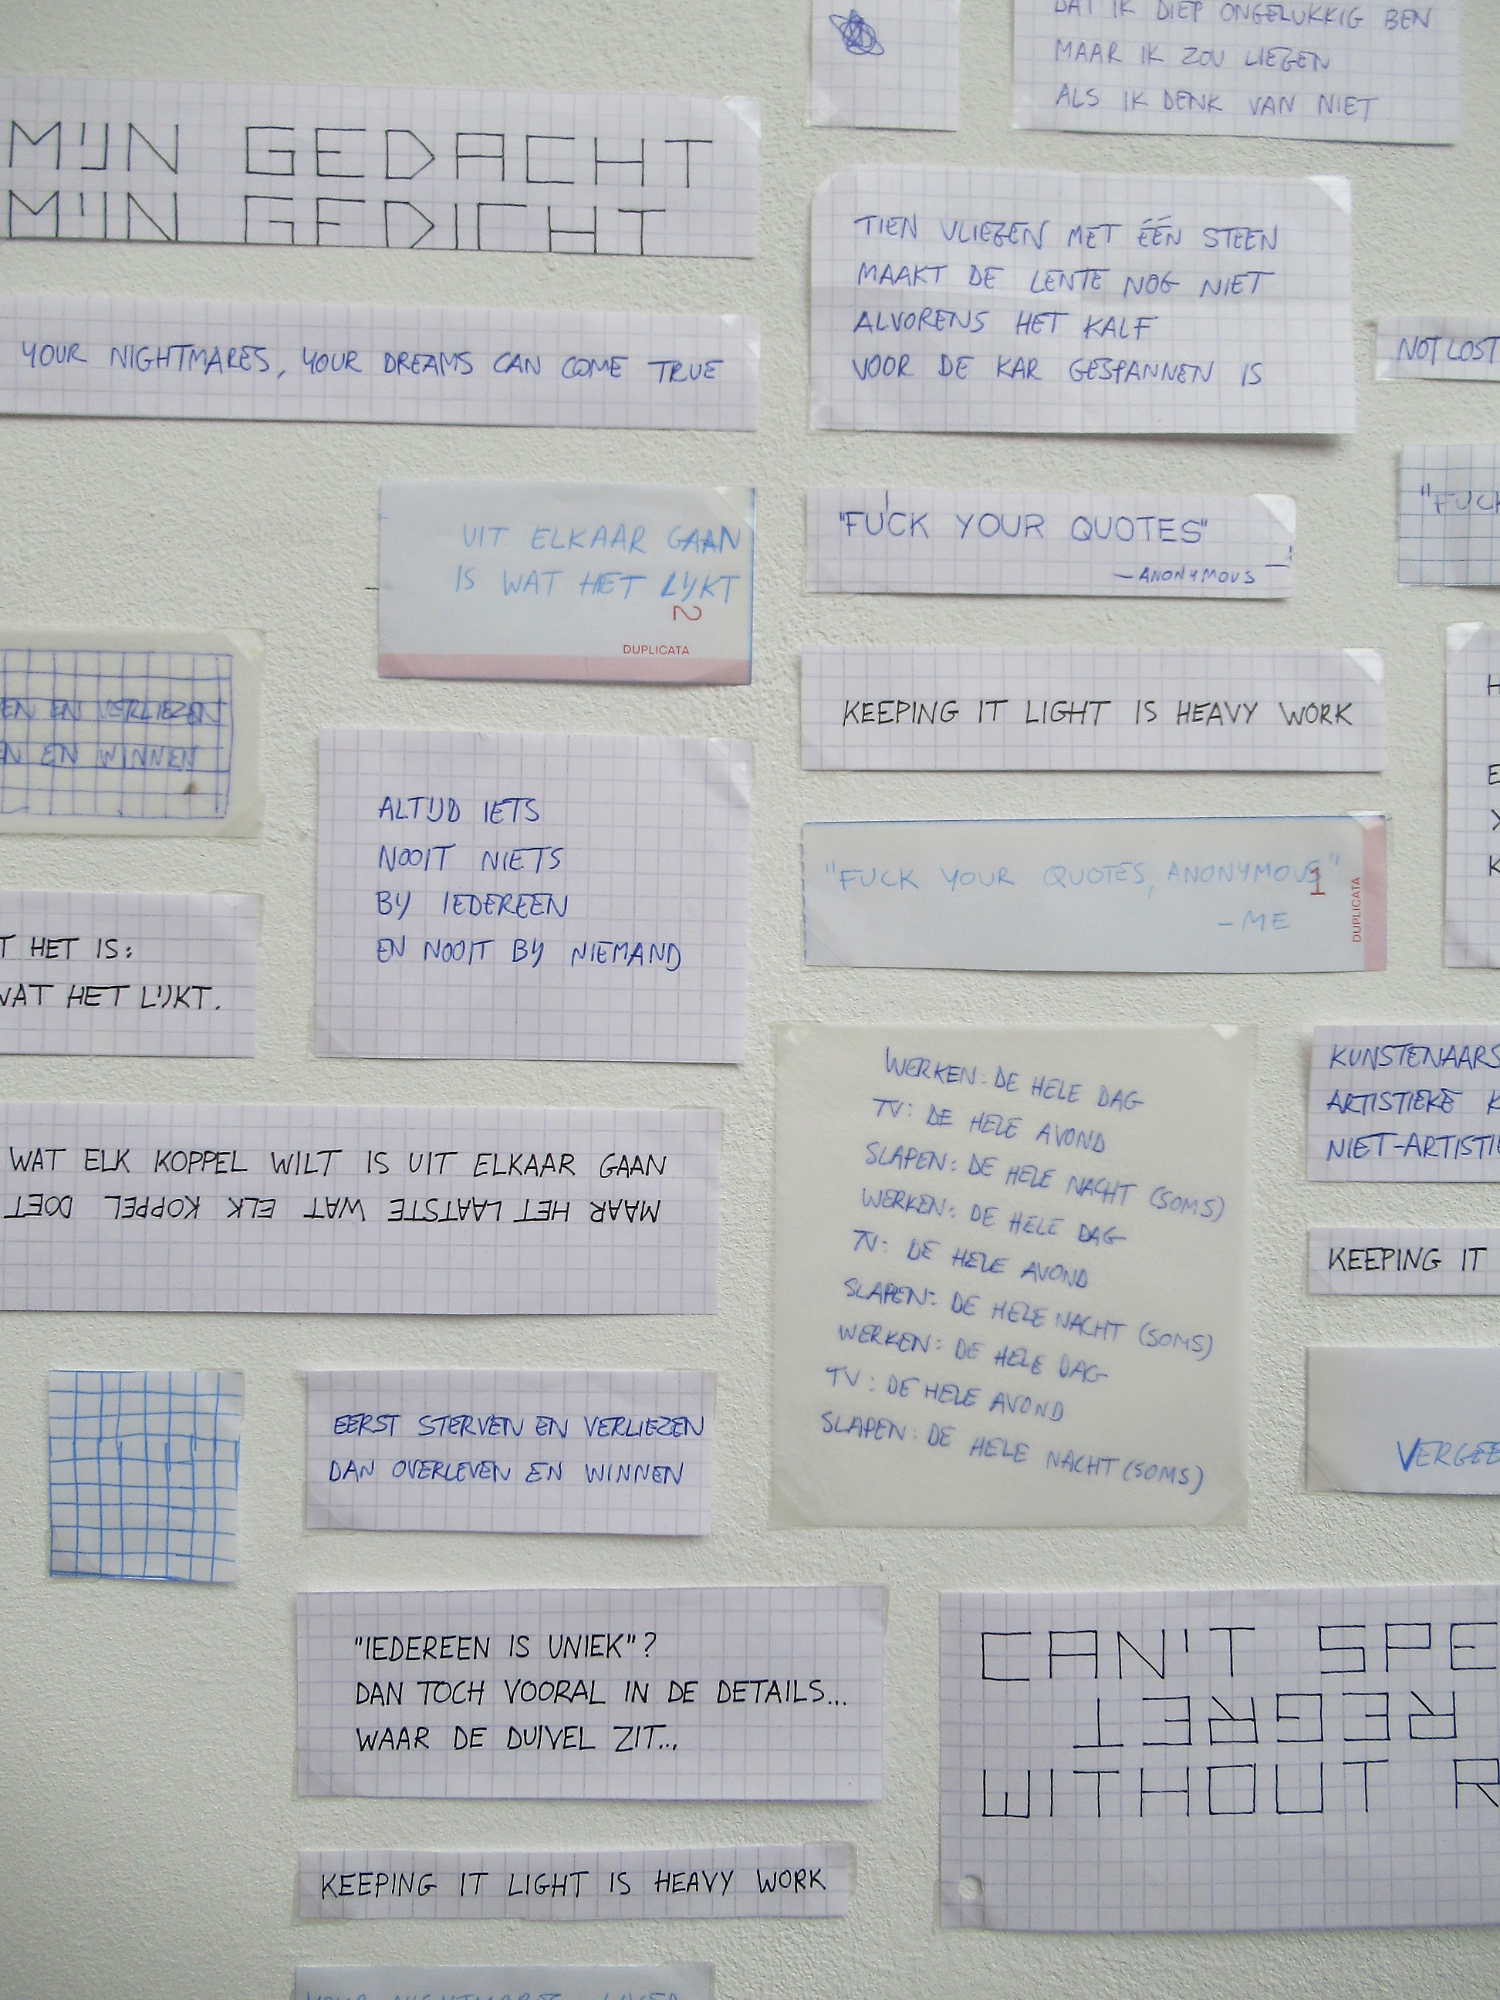 DAT IK DIEP ONGELUKKIG BEN
MAAR IK ZOU LIEGEN
ALS IK DENK VAN NIET
MIJN GEDACHT
MIJN GEDICHT
TIEN VLIEGEN MET ÉÉN STEEN
MAAKT DE LENTE NOG NIET
ALVORENS HET KALF
VOOR DE KAR GESPANNEN IS
YOUR NIGHTMARES, YOUR DREAMS CAN COME TRUE
NOT LOST
UIT ELKAAR GAAN
IS WAT HET LIJKT
2
DUPLICATA
"FUCK YOUR QUOTES"
—ANONYMOUS
"FUCK
KEEPING IT LIGHT IS HEAVY WORK
EN EN VERLIEZEN
EN EN WINNEN
ALTIJD IETS
NOOIT NIETS
BIJ IEDEREEN
EN NOOIT BIJ NIEMAND
"FUCK YOUR QUOTES, ANONYMOUS"
—ME
1
DUPLICATA
T HET IS:
WAT HET LIJKT.
WERKEN: DE HELE DAG
TV: DE HELE AVOND
SLAPEN: DE HELE NACHT (SOMS)
WERKEN: DE HELE DAG
TV: DE HELE AVOND
SLAPEN: DE HELE NACHT (SOMS)
WERKEN: DE HELE DAG
TV: DE HELE AVOND
SLAPEN: DE HELE NACHT (SOMS)
KUNSTENAARS
ARTISTIEKE K
NIET-ARTISTIE
WAT ELK KOPPEL WILT IS UIT ELKAAR GAAN
MAAR HET LAATSTE WAT ELK KOPPEL DOET
KEEPING IT
EERST STERVEN EN VERLIEZEN
DAN OVERLEVEN EN WINNEN
VERGEE
"IEDEREEN IS UNIEK"?
DAN TOCH VOORAL IN DE DETAILS...
WAAR DE DUIVEL ZIT...
CAN'T SPE
REGRET
WITHOUT R
KEEPING IT LIGHT IS HEAVY WORK
YOUR NIGHTMARES